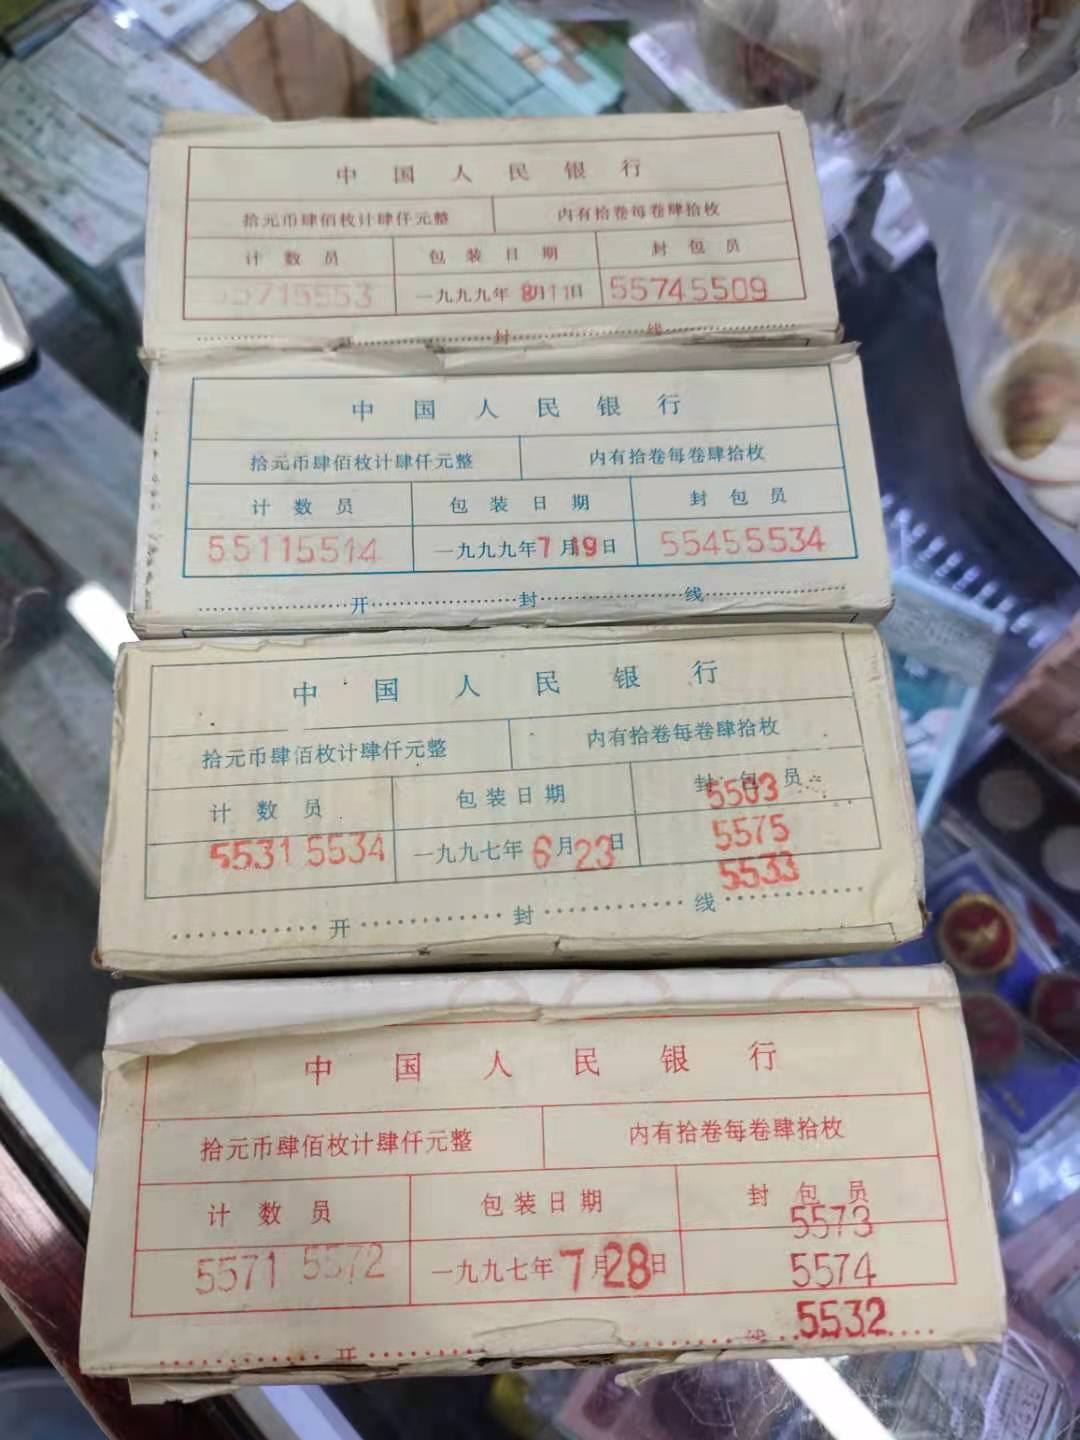 中国人民银行
拾元币肆佰枚计肆仟元整 内有拾卷每卷肆拾枚
计数员 包装日期 封包员
55715553 一九九九年8月11日 55745509
开封线
中国人民银行
拾元币肆佰枚计肆仟元整 内有拾卷每卷肆拾枚
计数员 包装日期 封包员
55115514 一九九九年7月19日 55455534
开封线
中国人民银行
拾元币肆佰枚计肆仟元整 内有拾卷每卷肆拾枚
计数员 包装日期 封包员
5503
5531 5534 一九九七年6月23日 5575
5533
开封线
中国人民银行
拾元币肆佰枚计肆仟元整 内有拾卷每卷肆拾枚
计数员 包装日期 封包员
5573
5571 5572 一九九七年7月28日 5574
5532
开 线